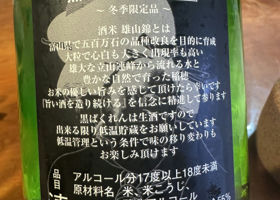 ～冬季限定品～
酒米 雄山錦とは
富山県で五百万石の品種改良を目的に育成
大粒で心白も大きく出現率も高い
雄大な立山連峰から流れる水と
豊かな自然で育った稲穂
お米の優しい旨みを感じて頂けたら幸いです
「旨い酒を造り続ける」を信念に精進して参ります
黒ばくれんは生酒ですので
出来る限り低温貯蔵をお願いしています
低温管理という条件で味の移り変わりも
お楽しみ頂けます
品目
アルコール分17度以上18度未満
原材料名 米、米こうじ、
アルコール
55%